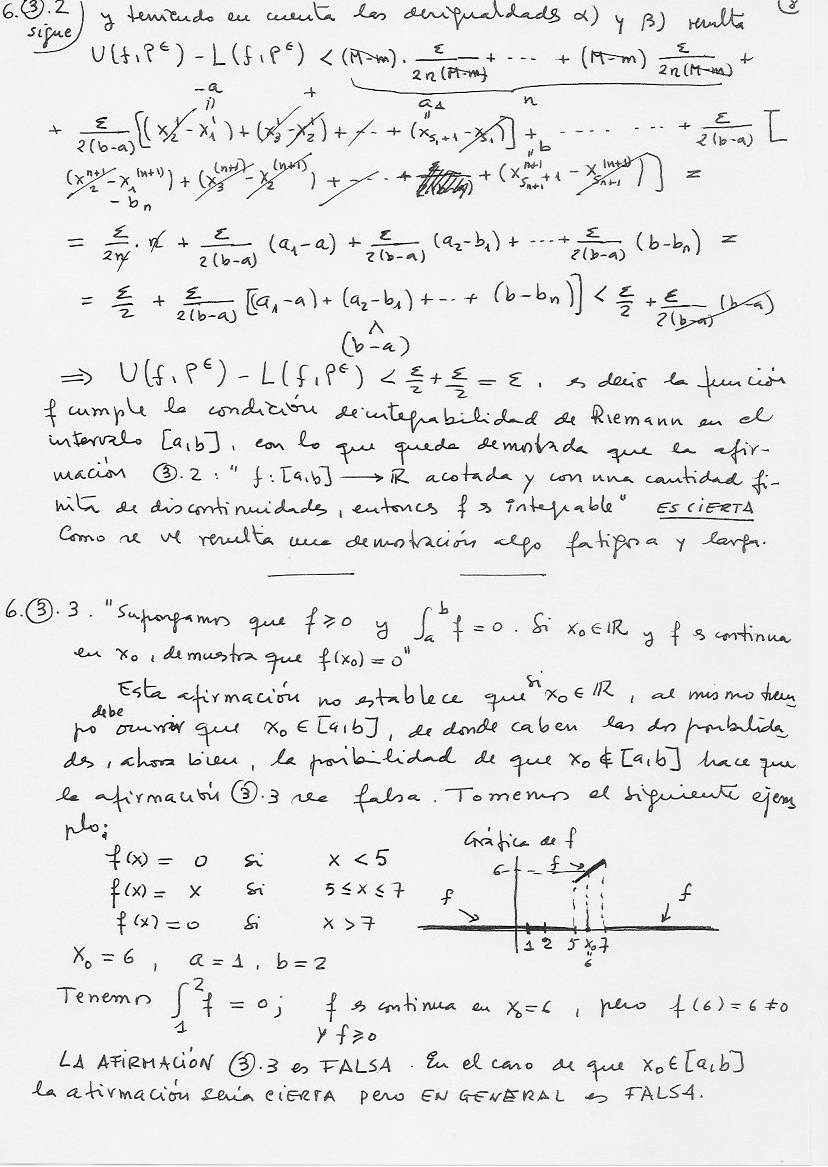 6.③.2 y teniendo en cuenta las desigualdads α) y β) resulta
sigue)
U(f,P^ε) - L(f,P^ε) < (M-m)· ε/2n(M-m) + ··· + (M-m) ε/2n(M-m) +
-a + a₁ n
+ ε/2(b-a) [(x₂¹ - x₁¹) + (x₃¹ - x₂¹) + ··· + (x_{s₁+1} - x_{s₁})] + ····· + ε/2(b-a) [
b
(x₂^{n+1} - x₁^{(n+1)}) + (x₃^{(n+1)} - x₂^{(n+1)}) + ··· + (x_{s_{n+1}+1}^{n+1} - x_{s_{n+1}}^{(n+1)})] =
- b_n
= ε/2n · n + ε/2(b-a) (a₁-a) + ε/2(b-a) (a₂-b₁) + ··· + ε/2(b-a) (b-b_n) =
= ε/2 + ε/2(b-a) [(a₁-a) + (a₂-b₁) + ·· + (b-b_n)] < ε/2 + ε/2(b-a) (b-a)
∧
(b-a)
⟹ U(f,P^ε) - L(f,P^ε) < ε/2 + ε/2 = ε, es decir la función
f cumple la condición de integrabilidad de Riemann en el
intervalo [a,b], con lo que queda demostrada que la afir-
mación ③.2 : "f: [a,b] ⟶ ℝ acotada y con una cantidad fi-
nita de discontinuidades, entoncs f es integrable" ES CIERTA
Como se ve resulta una demostración algo fatigosa y larga.
6.③.3. "Supongamos que f ≥ 0 y ∫_a^b f = 0. Si x₀ ∈ ℝ y f es continua
en x₀, demuestra que f(x₀) = 0"
Esta afirmación no establece que si x₀ ∈ ℝ, al mismo tiem
po debe ocurrir que x₀ ∈ [a,b], de donde caben las dos posibilida
des, ahora bien, la posibilidad de que x₀ ∉ [a,b] hace que
la afirmación ③.3 sea falsa. Tomemos el siguiente ejem
plo:
Gráfica de f
f(x) = 0 si x < 5
f(x) = x si 5 ≤ x ≤ 7
f(x) = 0 si x > 7
6 f
f f
1 2 5 x₀ 7
"
6
x₀ = 6, a = 1, b = 2
Tenemos ∫_1^2 f = 0; f es continua en x₀ = 6, pero f(6) = 6 ≠ 0
y f ≥ 0
LA AFIRMACIÓN ③.3 es FALSA. En el caso de que x₀ ∈ [a,b]
la afirmación sería CIERTA pero EN GENERAL es FALSA.